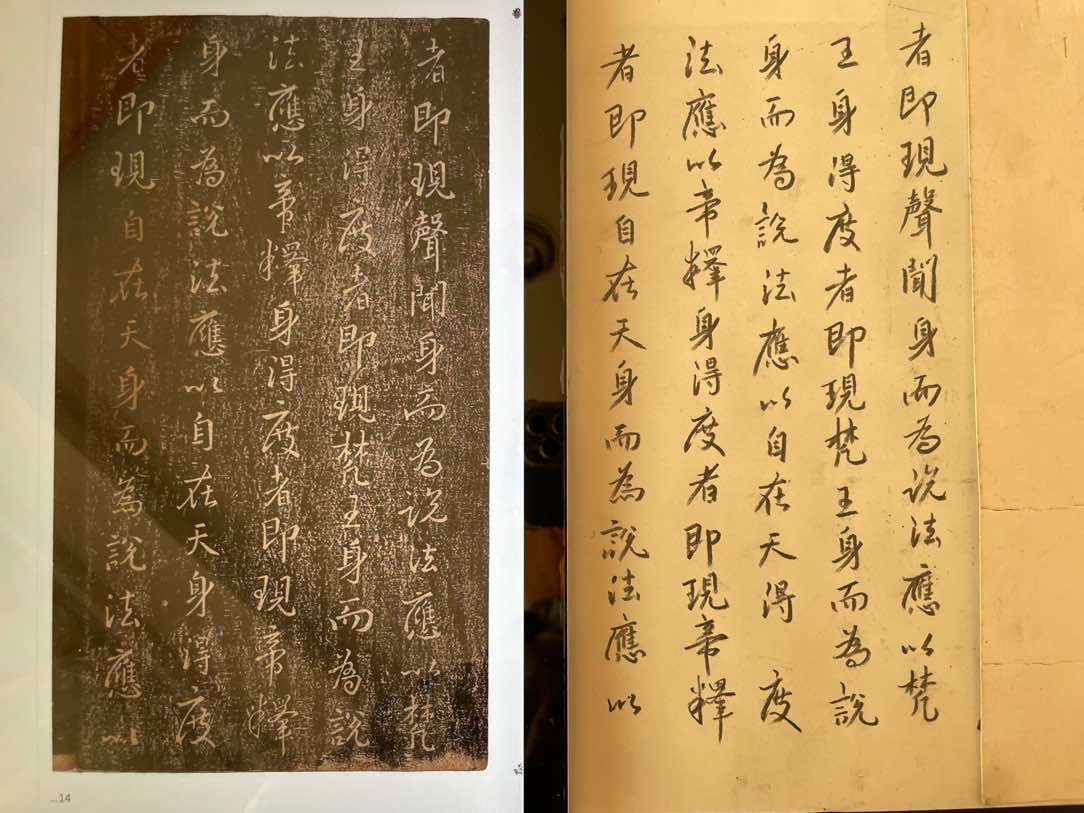 者即現聲聞身而為說法應以梵
王身得度者即現梵王身而為說
法應以帝釋身得度者即現帝釋
身而為說法應以自在天身得度
者即現自在天身而為說法應以
14
者即現聲聞身而為說法應以梵
王身得度者即現梵王身而為說
法應以帝釋身得度者即現帝釋
身而為說法應以自在天得度
者即現自在天身而為說法應以